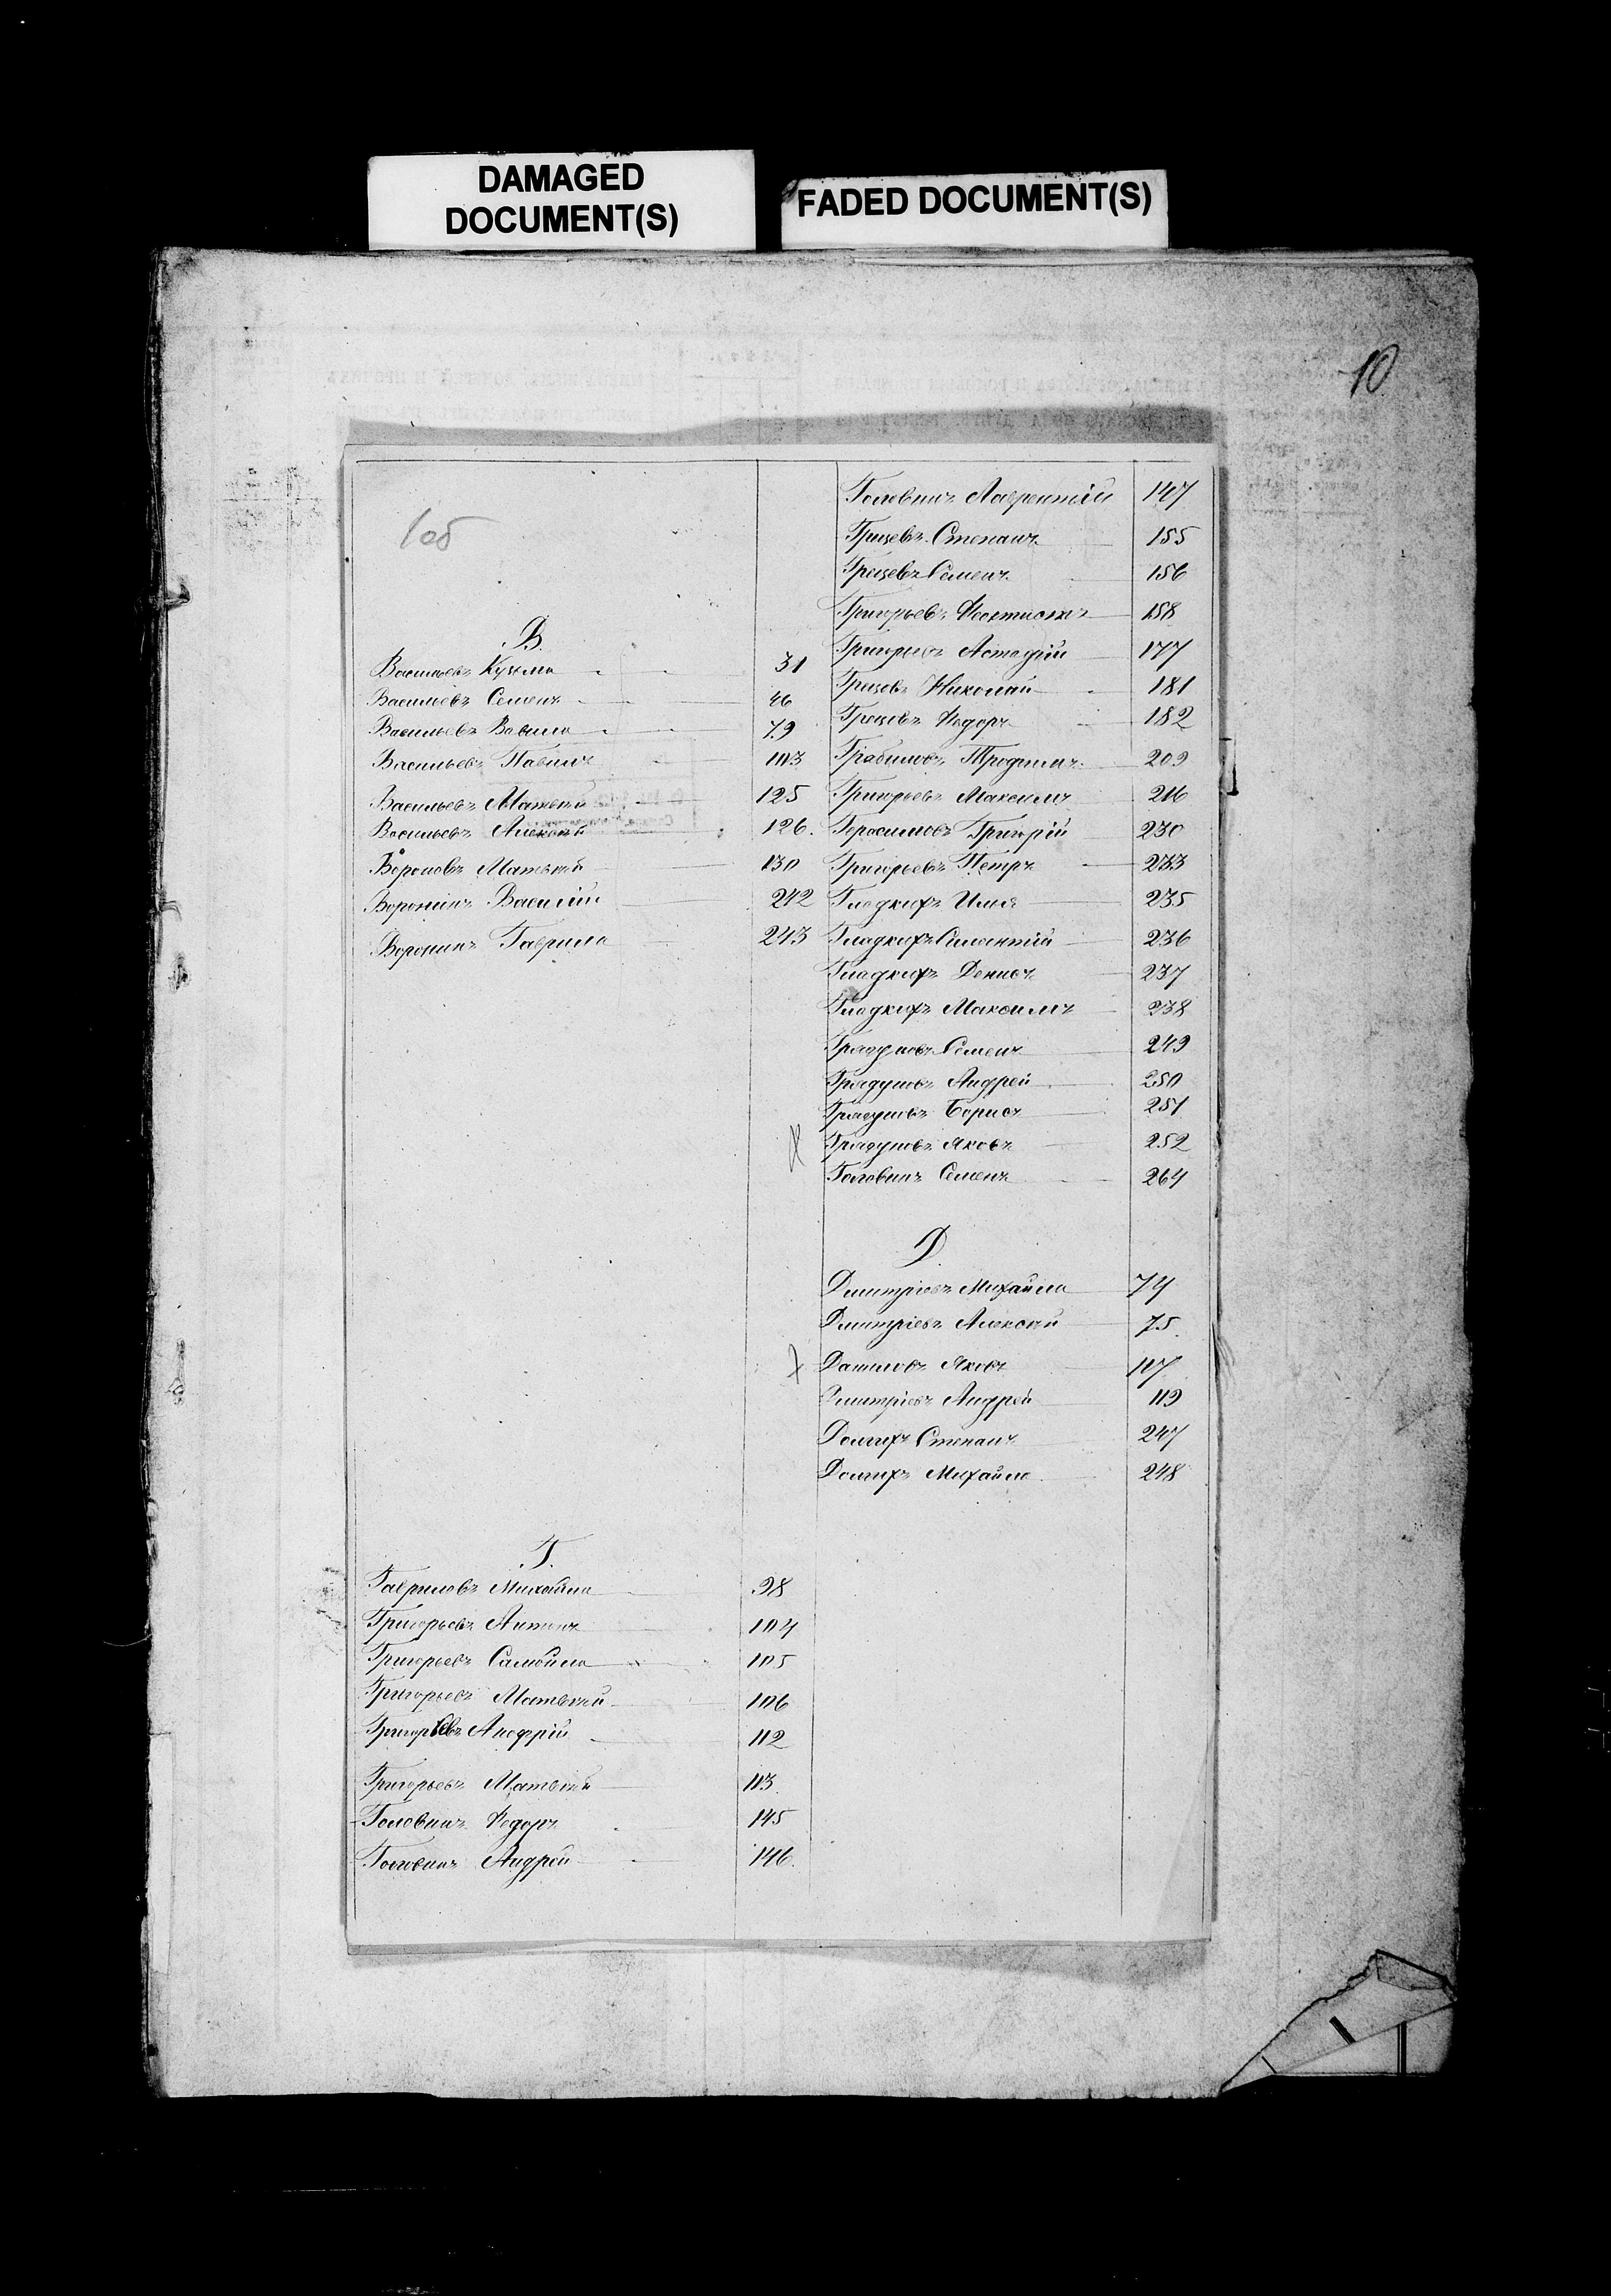 DAMAGED
DOCUMENT(S)
FADED DOCUMENT(S)
10
1об
В.
Васильевъ Кузьма 31
Васильевъ Семенъ 46
Васильевъ Вавила 79
Васильевъ Павелъ 103
Васильевъ Матвей 125
Васильевъ Алексей 126.
Вороновъ Матвей 130
Воронинъ Василий 242
Воронинъ Гаврила 243
Г.
Гавриловъ Михайла 98
Григорьевъ Антонъ 104
Григорьевъ Самойла 105
Григорьевъ Матвей 106
Григорьевъ 112
Григорьевъ Матвей 113.
Головинъ Федоръ 145
Головинъ Андрей 146.
Головинъ Лаврентий 147
Грицевъ Степанъ 155
Грецевъ Семенъ 156
Григорьевъ Феоктистъ 158
Григорьевъ 177
Грецовъ Николай 181
Грецовъ Федоръ 182
209
Григорьевъ Максимъ 216
Герасимовъ Григорій 230
Григорьевъ Петръ 233
Гладкихъ Илья 235
Гладкихъ Силантий 236
Гладкихъ Денисъ 237
Гладкихъ Максимъ 238
Грядуновъ Семенъ 249
Грядуновъ Андрей 250
Грядуновъ Борисъ 251
Грядуновъ Яковъ 252
Головинъ Семенъ 264
Д.
Дмитріевъ Михайла 74
Дмитріевъ Алексей 75.
Даниловъ Яковъ 107
Дмитріевъ Андрей 119
Долгихъ Степанъ 247
Долгихъ Михайла 248